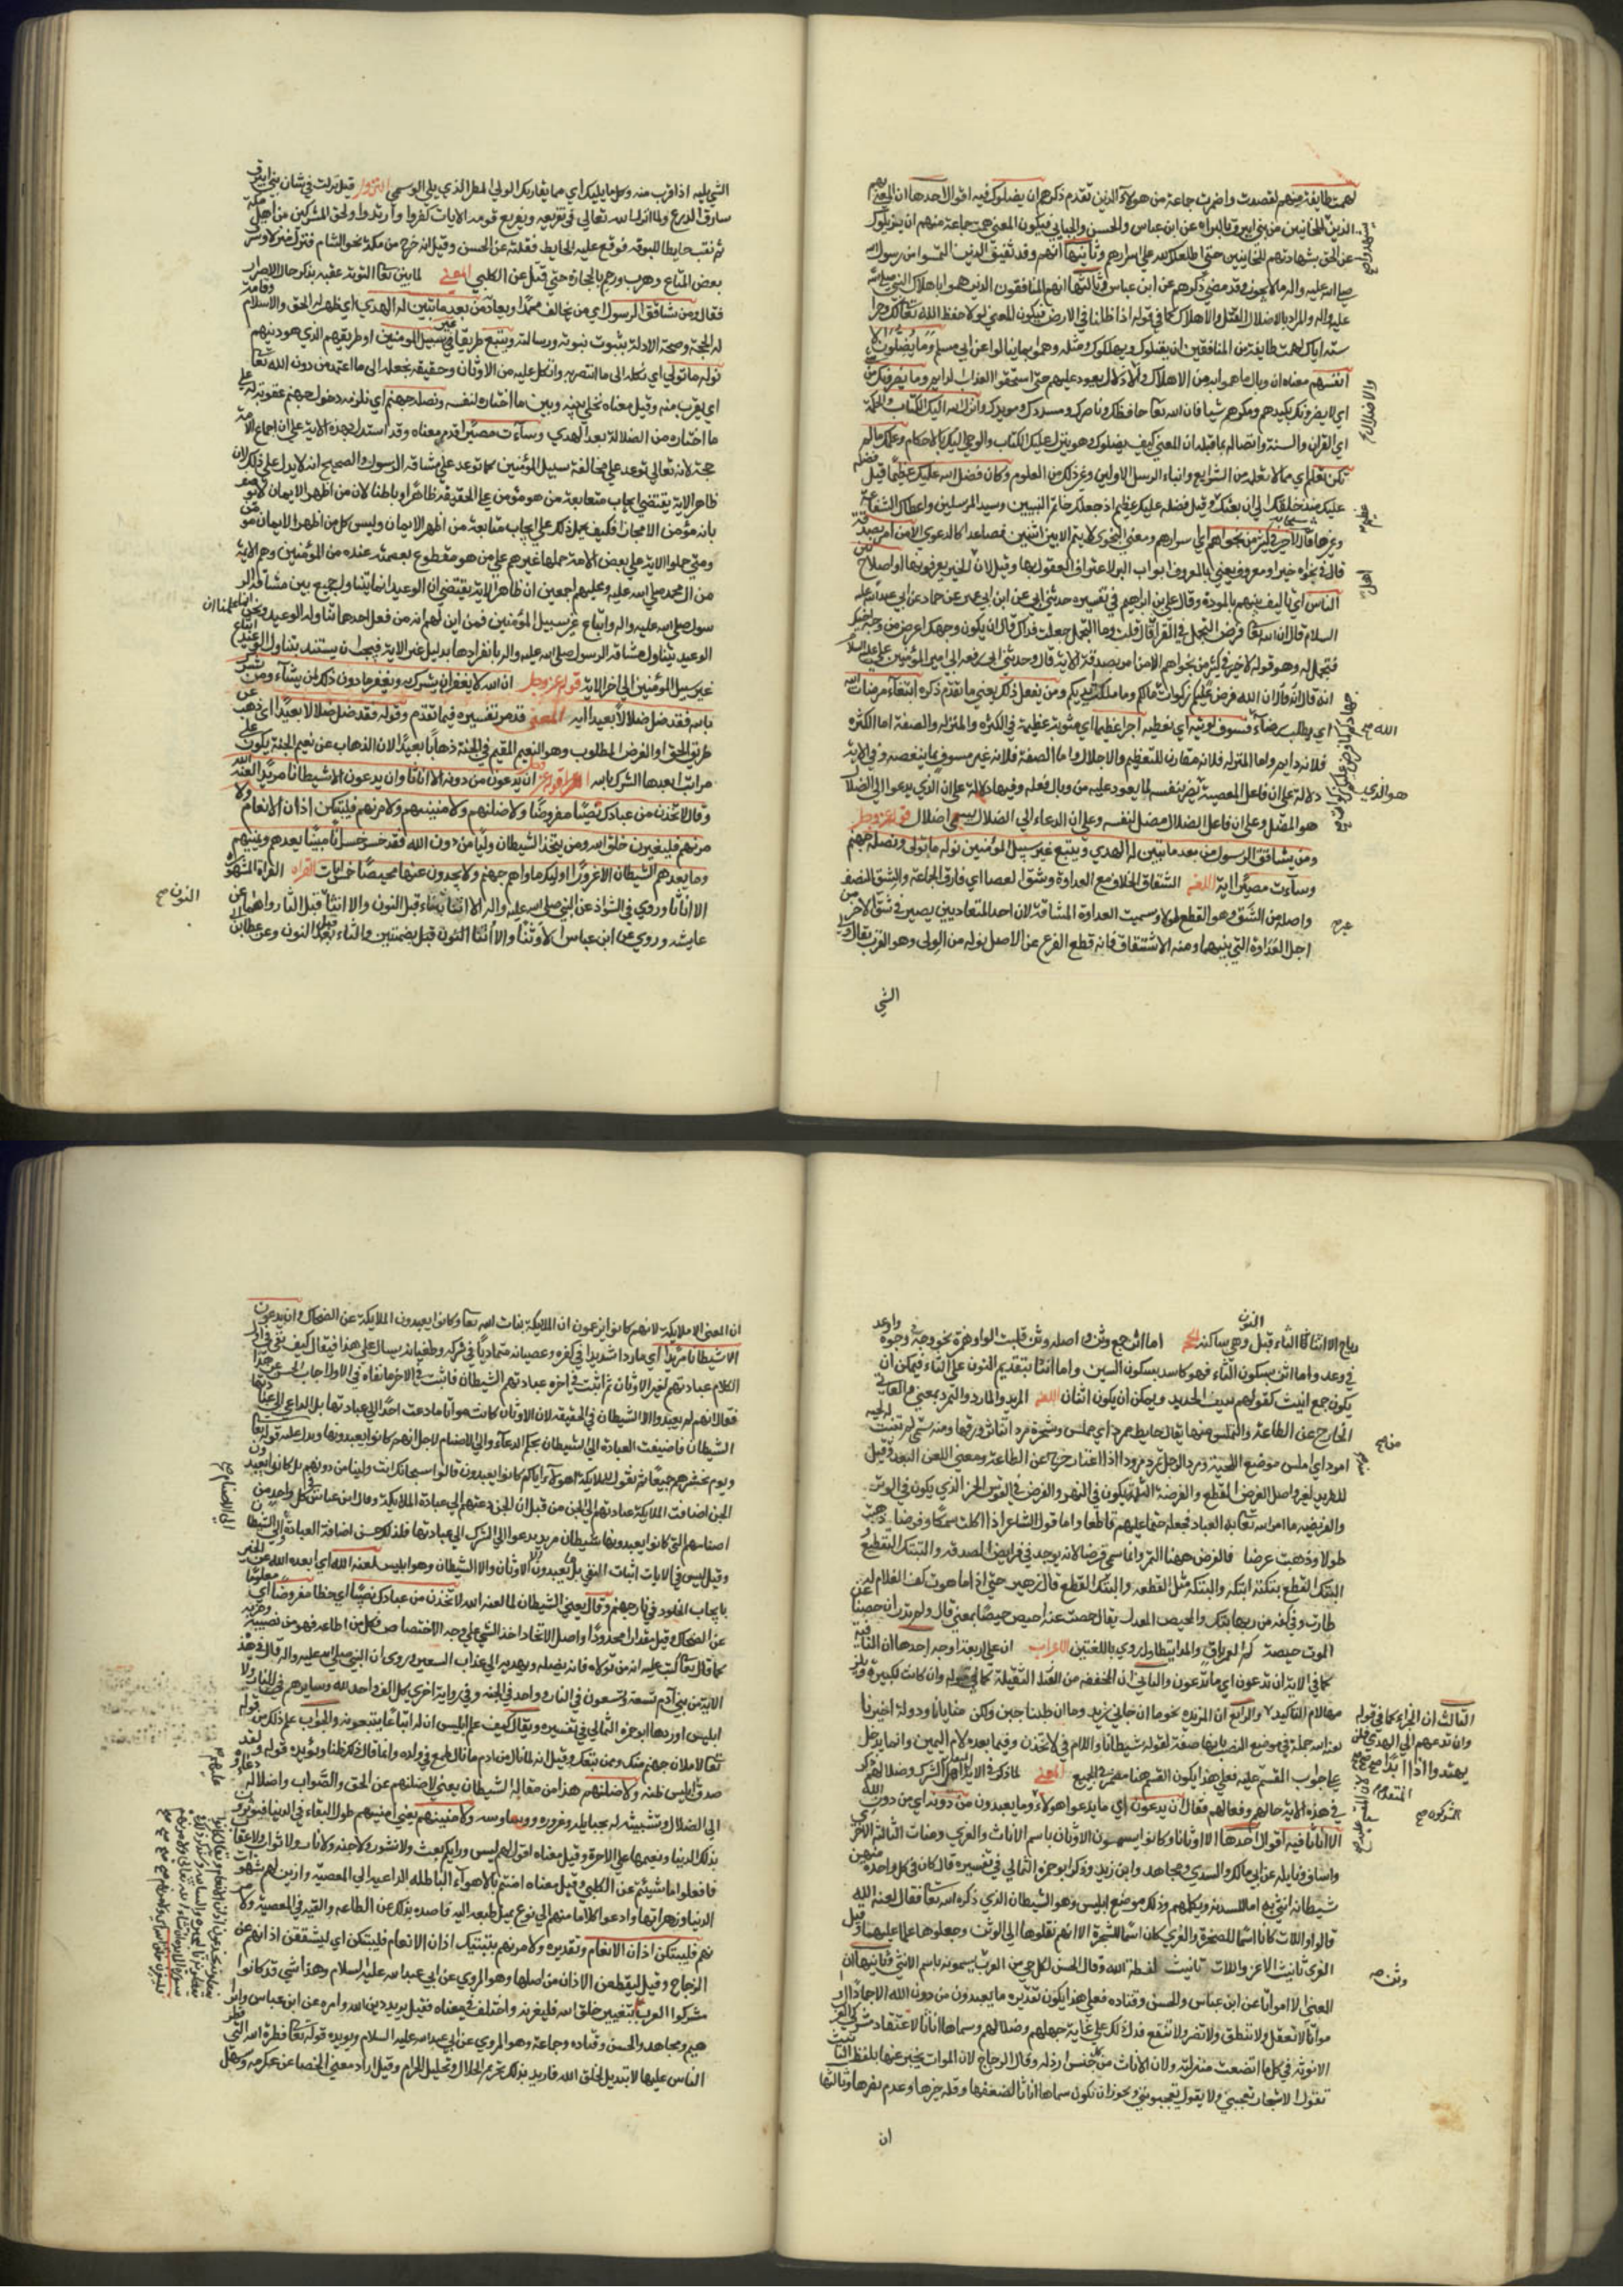 لهمت طايفة منهم لقصدت واضمرت جماعة من هولاء الذين تقدم ذكرهم ان يضلوك فيه اقوال احدها ان المعني بهم
الذين شهدوا للخائنين من بني ابيرق بالبراه عن ابن عباس والحسن والجبايي فيكون المعني همت جماعة منهم ان يزيلوك
عن الحق بشهادتهم للخاينين حتى اطلعك الله على اسرارهم وثانيها انهم وفد ثقيف الذين التمسوا من رسول الله
صلي الله عليه واله ما لا يجوز وقد مضي ذكرهم عن ابن عباس وثالثها انهم المنافقون الذين هموا باهلاك النبي صلي الله
عليه واله والمراد بالاضلال القتل والاهلاك كما في قوله اذا ضللنا في الارض فيكون المعني لولا حفظ الله تعالي لك وحرا
سته اياك لهمت طايفة من المنافقين ان يقتلوك ويهلكوك ومثله وهموا بما لم ينالوا عن ابي مسلم وما يضلون الا
انفسهم معناه ان وبال ما هموا به من الاهلاك والاذلال يعود عليهم حتى استحقوا العذاب الدايم وما يضرونك من شي
اي لا يضرونك بكيدهم ومكرهم شيا فان الله تعا حافظك وناصرك ومسددك ومويدك وانزل الله اليك الكتاب والحكمة
اي القران والسنة واتصاله بما قبله ان المعني كيف يضلوك وهو ينزل عليك الكتاب والوحي اليك بالاحكام وعلمك ما لم
تكن تعلم اي ما لا تعلمه من الشرايع وانباء الرسل الاولين وغير ذلك من العلوم وكان فضل الله عليك عظيما قيل فضله
عليك منذ خلقك الي ان بعثك وقيل فضله عليك عظيم اذ جعلك خاتم النبيين وسيد المرسلين واعطاك الشفاعة
وغيرها قال لا خير في كثير من نجواهم اي اسرارهم ومعني النجوي لا يتم الا بين اثنين فصاعدا كالدعوي الا من امر بصدقة
قال في نجواه خيرا ومعروف يعني بالمعروف ابواب البر لاعتراف العقول بها وقيل لان اهل الخير يعرفونها او اصلاح بين
الناس اي تاليف بينهم بالمودة وقال علي بن ابراهيم في تفسيره حدثني ابي عن ابن ابي عمير عن حماد عن ابي عبد الله عليه
السلام قال ان الله تعا فرض التجمل في القران قال قلت وما التجمل جعلت فداك قال ان يكون وجهك اعرض من وجه اخيك
فتجمل له وهو قوله لا خير في كثير من نجواهم الا من امر بصدقة الاية قال وحدثني ابي رفعه الي امير المؤمنين علي عليه السلام
انه قال ان الله فرض عليكم زكوات ما ملكت ايديكم ومن يفعل ذلك يعني ما تقدم ذكره ابتغاء مرضات الله
اي يطلب رضاء الله فسوف نوتيه اي نعطيه اجرا عظيما اي مثوبة عظيمة في الكثرة والمنزلة والصفة اما الكثره
فلانه دايم واما المنزله فلانه مقارن للتعظيم والاجلال واما الصفة فلانه غير مسوق بما ينغصه وفي الاية
دلالة على ان فاعل المعصية هو الذي يضر بنفسه لما يعود عليه من وبال فعله وفيها دلالة على ان الذي يدعوا الي الضلال
هو المضل وعلى ان فاعل الضلال مضل لنفسه وعلى ان الدعاء الي الضلال يسمي اضلال قوله عز وجل
ومن يشاقق الرسول من بعد ما تبين له الهدي ويتبع غير سبيل المؤمنين نوله ما تولي ونصله جهنم
وساءت مصيرا اية اللغه الشقاق الخلاف مع العداوة وشق العصا اي فارق الجماعة والشق النصف
واصله من الشق وهو القطع طولا وسميت العداوة المشاقة لان احد المتعاديين يصير في شق غير شق الاخر من
اجل العداوة التي بينهما ومنه الاشتقاق فانه قطع الفرع عن الاصل نوله من الولي وهو القرب يقال ولي
الشي
الشي يليه اذا قرب منه وكل ما يليك اي مما يقاربك الولي المطر الذي يلي الوسمي النزول قيل نزلت في شان بني ابيرق
سارق الدرع ولما انزل الله تعالي في تقريعه وتقريع قومه الايات كفر وارتد ولحق المشركين من اهل مكة
ثم نقب حايطا للسرقه فوقع عليه الحايط فقتله عن الحسن وقيل انه خرج من مكة نحو الشام فنزل منزلا وسرق
بعض المتاع وهرب ورمي بالحجارة حتى قتل عن الكلبي المعني لما بين تعا التوبة عقبه بذكر حال الاصرار
فقال ومن يشاقق الرسول اي من يخالف محمدا ويعاديه من بعد ما تبين له الهدي اي ظهر له الحق والاسلام وقامت
له الحجة وصحة الادلة بثبوت نبوته ورسالته ويتبع طريقا غير سبيل المؤمنين او طريقهم الذي هو دينهم
نوله ما تولي اي نكله الي ما انتصر به واتكل عليه من الاوثان وحقيقته نجعله الى ما اعتمده من دون الله تعا
اي يقرب منه وقيل معناه نخلي بينه وبين ما اختاره لنفسه ونصله جهنم اي نلزمه دخول جهنم عقوبة له علي
ما اختاره من الضلالة بعد الهدي وساءت مصيرا قد مر معناه وقد استدل بهذه الاية على ان اجماع الامة
حجة لانه تعالي توعد على مخالفة سبيل المؤمنين كما توعد على مشاقة الرسول والصحيح انه لا يدل على ذلك لان
ظاهر الاية يقتضي ايجاب متابعة من هو مؤمن على الحقيقة ظاهرا وباطنا لان من اظهر الايمان لا يوصف
بانه مؤمن الا مجازا فكيف يحمل ذلك على ايجاب متابعة من اظهر الايمان وليس كل من اظهر الايمان مؤمن
ومتى حملوا الاية على بعض الامة حملها غيرهم على من هو مقطوع بعصمته عنده من المؤمنين وهم الايمة
من ال محمد صلي الله عليه وعليهم اجمعين ان ظاهر الاية يقتضي ان الوعيد انما يتناول لجميع بين مشاقة الر
سول صلي الله عليه واله واتباع غير سبيل المؤمنين فمن اين لهم انه من فعل احدهما تناوله الوعيد ونحن انما علمنا ان
الوعيد يتناول مشاقة الرسول صلي الله عليه واله بانفرادها بدليل غير الاية فيجب ان يستند تناول الوعيد اتباع
غير سبيل المؤمنين الي اخر الاية قوله عز وجل ان الله لا يغفر ان يشرك به ويغفر ما دون ذلك لمن يشاء ومن يشرك
بالله فقد ضل ضلالا بعيدا اية المعني قد مر تفسيره فيما تقدم وقوله فقد ضل ضلالا بعيدا اي ذهب عن
طريق الحق او الغرض المطلوب وهو النعيم المقيم في الجنة ذهابا بعيدا لان الذهاب عن نعيم الجنة يكون على
مراتب ابعدها الشرك بالله قوله عز وجل ان يدعون من دونه الا اناثا وان يدعون الا شيطانا مريدا لعنه الله
وقال لاتخذن من عبادك نصيبا مفروضا ولاضلنهم ولامنينهم ولامرنهم فليبتكن اذان الانعام ولا
مرنهم فليغيرن خلق الله ومن يتخذ الشيطان وليا من دون الله فقد خسر خسرانا مبينا يعدهم ويمنيهم
وما يعدهم الشيطان الا غرورا اوليك ماواهم جهنم ولا يجدون عنها محيصا خمس ايات القراه القراة المشهورة
الا اناثا وروي في الشواذ عن النبي صلي الله عليه واله الا اثنا بثاء قبل النون والا انثا النون قبل الثا رواهما عن
عايشه وروي عن ابن عباس الا وثنا والا اثنا النون قبل بضمتين والثاء بعدها قبل النون وعن عطا بن
رباح الا اثنا الثاء قبل النون وهي ساكنه الحجه اما اثن جمع وثن واصله وثن قلبت الواو همزة نحو وجوه واجوه
في وعد واعد واما اثن بسكون الثاء فهو كاسد بسكون السين واما انثا بتقديم النون على الثاء فيمكن ان
يكون جمع انيث كقولهم سيف انيث الحديد ويمكن ان يكون جمع اناث اللغه المريد والمارد والمتمرد بمعني وهو العاتي
الخارج عن الطاعة والمتملس منها يقال حايط ممرد اي مملس وشجرة مردا تناثر ورقها ومنه سمي من لم تنبت له لحيه
امرد اي املس موضع اللحية ومرد الرجل يمرد مرودا اذا عتا وخرج عن الطاعة ومعني اللعن البعد وقيل
للطريد لعين واصل الفرض القطع والفرضة الثلمة تكون في النهر والفرض في القوس الحز الذي يكون في الوتر
والفريضه ما امر الله تعا به العباد فجعله حتما عليهم قاطعا واما قول الشاعر اذا اكلت سمكا وفرضا ذهبت
طولا وذهبت عرضا فالفرض ههنا التمر وانما سمي فرضا لانه يوجد في فرايض الصدقه والتبتك التقطيع
البتك القطع بتكته ابتكه والبتكه مثل القطعه والبتك القطع قال زهير حتي اذا ما هوت كف الغلام لها
طارت وفي كفه من ريشها بتك والمحيص المعدل يقال حصت عنه احيص حيصا بمعني قال ولم ندر ان حصنا عن
الموت حيصة كم العمر باق والمدا متطاول وروي باللغتين الاعراب ان على اربعة اوجه احدها ان النافيه
كما في الاية ان يدعون اي ما يدعون والثاني ان المخففه من الثقيلة كما في قوله وان كانت لكبيرة ويلز
مها لام التاكيد والرابع ان المزيده نحو ما ان جاني زيد وما ان طبنا جبن ولكن منايانا ودولة اخرينا
لعنه الله جملة في موضع النصب بانها صفة لقوله شيطانا واللام في لاتخذن وفيما بعده لام اليمين وانما يدخل
على جواب القسم حليه فعلى هذا يكون القسم ههنا مضمر في الجميع المعني لما ذكر في الاية المتقدمه اهل الشرك وضلالهم ذكر
في هذه الاية حالهم وفعالهم فقال ان يدعون اي ما يدعوا هولاء وما يعبدون من دونه اي من دون الله
الا اناثا فيه اقوال احدها الا اوثانا وكانوا يسمون الاوثان باسم الاناث والعزي ومنات الثالثة الاخري
واساف ونايله عن ابي مالك والسدي ومجاهد وابن زيد وذكر ابو حمزه الثمالي في تفسيره قال كان في كل واحده منهن
شيطانة انثي تترا اما للسدنة وتكلمهم وذلك موضع ابليس وهو الشيطان الذي ذكره الله تعا فقال لعنه الله
قالوا واللات كانا اسما للصخرة والعزي كان اسما للشجرة الا انهم نقلوها الي الوثن وجعلوها علما عليهما وقيل
العزي تانيث الاعز واللات تانيث لفظة الله وقال الحسن لكل حي من العرب وثن يسمونه باسم الانثي وثانيها ان
المعني الا امواتا عن ابن عباس والحسن وقتاده فعلى هذا يكون تقديره ما يعبدون من دون الله الا جمادا او
مواتا لا تعقل ولا تنطق ولا تضر ولا تنفع فدل ذلك على غاية جهلهم وضلالهم وسماها اناثا لاعتقاد مشركي العرب
الانوثه في كل ما اتضعت منزلته ولان الاناث من كل جنس ارذله وقال الزجاج لان الموات يخبر عنها بلفظ التانيث
تقول الاحجار تعجبني ولا يقول يعجبونني ويجوز ان يكون سماها اناثا لضعفها وقله خيرها وعدم نفرها وثالثها
ان
ان المعني الا ملايكة لانهم كانوا يزعمون ان الملايكة بنات الله تعا وكانوا يعبدون الملايكة عن الضحاك وان يدعون
الا شيطانا مريدا اي ماردا شديدا في كفره وعصيانه متماديا في شركه وطغيانه يسال على هذا فيقال كيف نفي في اول
الكلام عبادتهم لغير الاوثان ثم اثبت في اخره عبادتهم الشيطان فاثبت في الاخر ما نفاه في الاول اجاب الحسن عن هذا
فقال انهم لم يعبدوا الا الشيطان في الحقيقة لان الاوثان كانت مواتا ما دعت احدا الي عبادتها بل الداعي الي عبادتها
الشيطان فاضيفت العبادة الي الشيطان بحكم الدعاء والي الاصنام لاجل انهم كانوا يعبدونها ويدل عليه قوله تعا
ويوم يحشرهم جميعا ثم نقول للملايكة اهولاء اياكم كانوا يعبدون قالوا سبحانك انت ولينا من دونهم بل كانوا يعبدون
الجن اضافت الملايكة عبادتهم الي الجن من قبل ان الجن دعتهم الي عبادة الملايكة وقال ابن عباس كان في كل واحد من
اصنامهم التي كانوا يعبدونها شيطان مريد يدعوا الي الشرك الي عبادتها فلذلك حسن اضافة العبادة الي الشيطان
وقيل ليس في الايات اثبات المنفي بل يعبدون الاوثان والا الشيطان وهو ابليس لعنه الله اي ابعده الله عن الخير
بايجاب الخلود في نار جهنم وقال يعني الشيطان لما لعنه الله لاتخذن من عبادك نصيبا اي حظا مفروضا اي معلوما
عن الضحاك وقيل مقدارا محدودا واصل الاتخاذ اخذ الشي على وجه الاختصاص فكل من اطاعه فهو من نصيبه وحزبه
كما قال تعا كتب عليه انه من تولاه فانه يضله ويهديه الي عذاب السعير وروي ان النبي صلي الله عليه واله قال في هذه
الاية من بني ادم تسعة وتسعون في النار وواحد في الجنة وفي رواية اخري من كل الف واحد لله وسايرهم في النار ولا
ابليس اوردها ابو حمزه الثمالي في تفسيره ويقال كيف علم ابليس ان له اتباعا يتبعونه والجواب علم ذلك من قوله
تعا لاملان جهنم منك وممن تبعك وقيل انه لما نال من ادم ما نال طمع في ولده وانما قال ذلك ظنا ويؤيده قوله ولقد
صدق عليهم ابليس ظنه ولاضلنهم هذا من مقالة الشيطان يعني لاضلنهم عن الحق والصواب واضلاله دعاؤه
الي الضلال وتشبيثه له بحبايله وغروره ووسواسه ولامنينهم يعني امنيهم طول البقاء في الدنيا فيوثرون
بذلك الدنيا ونعيمها على الاخرة وقيل معناه اقول لهم ليس وراءكم بعث ولا نشور ولا جنة ولا نار ولا ثواب ولا عقاب
فافعلوا ما شيتم عن الكلبي وقيل معناه امنيهم بالاهواء الباطله الداعيه الي المعصية وازين لهم شهوات
الدنيا وزهراتها وادعوا كلا منهم الي نوع يميل طبعه اليه فاصده بذلك عن الطاعه والقيه في المعصية ولامر
نهم فليبتكن اذان الانعام وتقديره ولامرنهم بتبتيك اذان الانعام فليبتكن اي ليشققن اذانهم عن
الزجاج وقيل ليقطعن الاذان من اصلها وهو المروي عن ابي عبد الله عليه السلام وهذا شي قد كانوا
مشركوا العرب بتغيير خلق الله فليغيرنه واختلف في معناه فقيل يريد دين الله وامره عن ابن عباس وابرا
هيم ومجاهد والحسن وقتاده وجماعة وهو المروي عن ابي عبد الله عليه السلام ويويده قوله تعا فطرة الله التي
الناس عليها لا تبديل لخلق الله فاريد بذلك تحريم الحلال وتحليل الحرام وقيل اراد معني الخصا عن عكرمه وشهر